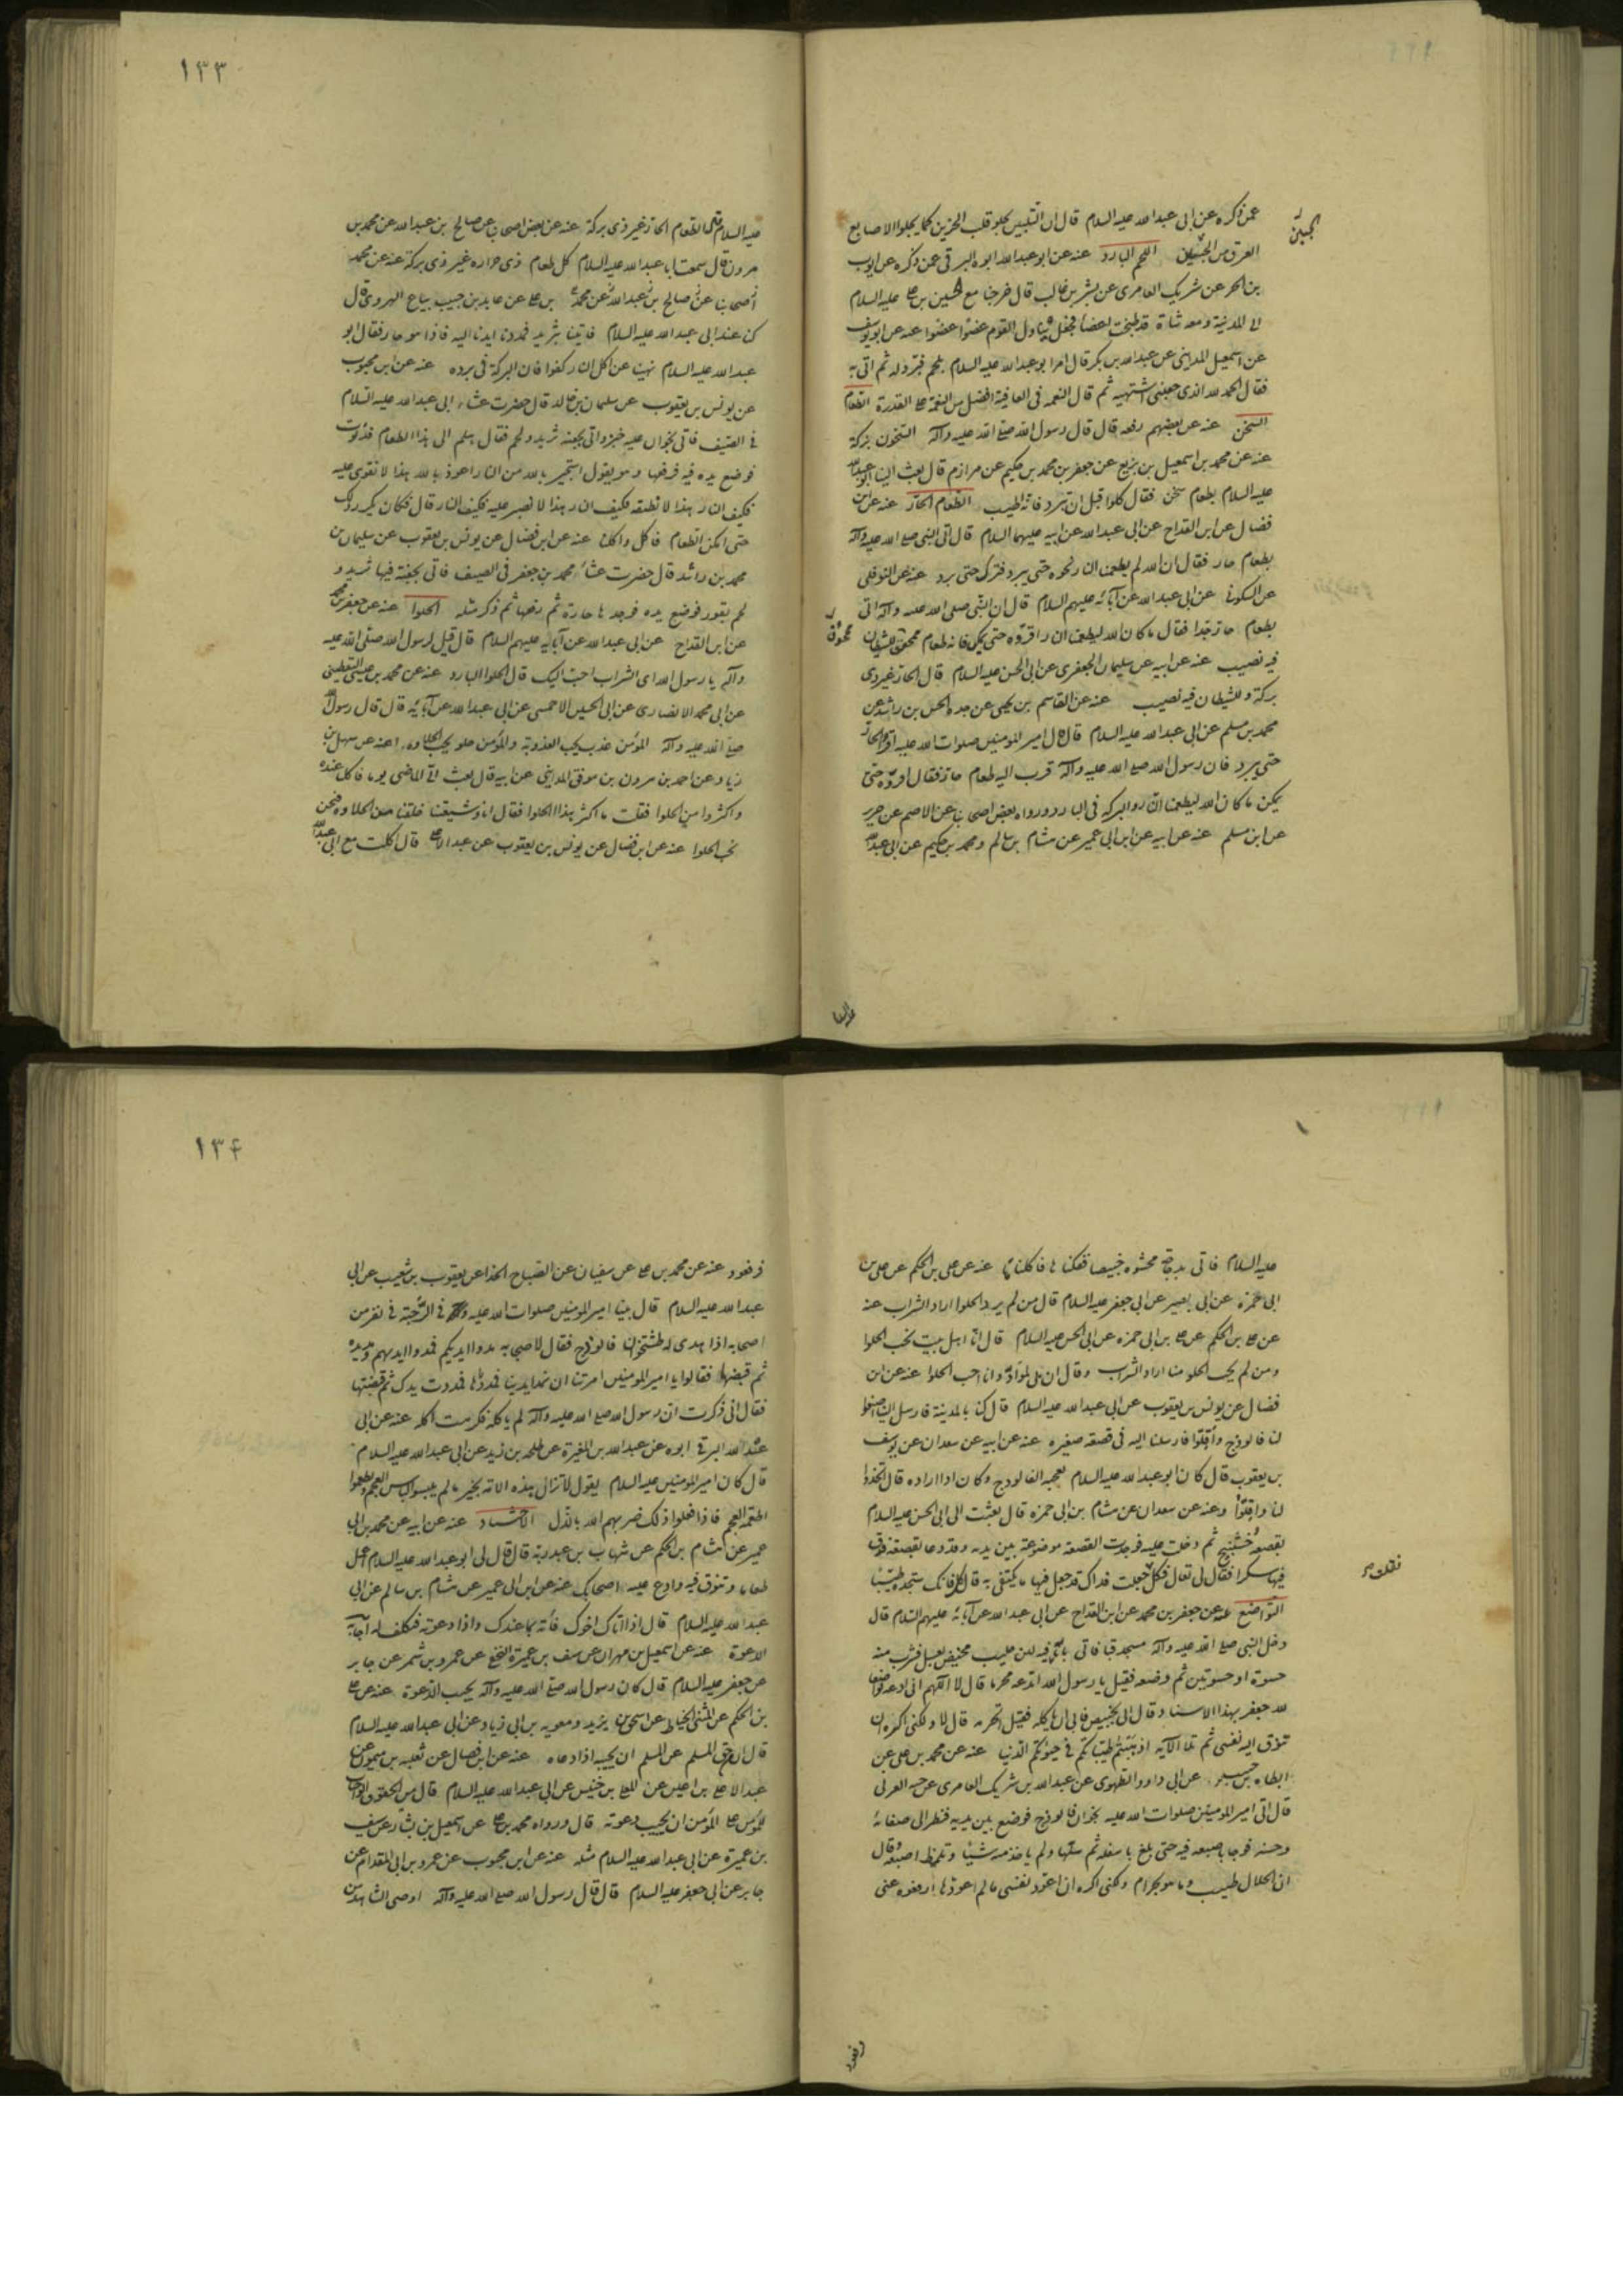 عمن ذكره عن ابى عبدالله عليه السلام قال ان التلبين يجلو قلب الحزين كما يجلوا الاصابع
الجبين
العرق من الجبين اللحم البارد عنه عن ابو عبدالله ابوه البرقى عمن ذكره عن ايوب
بن الحر عن شريك العامرى عن بشر بن غالب قال خرجنا مع الحسين بن على عليه السلام
الى المدينة ومعه شاة قد طبخت اعضاء فجعل يناول القوم عضوا عضوا عنه عن ابو يوسف
عن اسمعيل المداينى عن عبدالله بن بكر قال امر ابو عبدالله عليه السلام بلحم فبرد له ثم اتى به
فقال الحمد لله الذى جعلنى اشتهيه ثم قال النعمه فى العافية افضل من النعمة على القدرة الطعام
السخن عنه عن بعضهم رفعه قال قال رسول الله صلى الله عليه وآله السخون بركة
عنه عن محمد بن اسمعيل بن بزيع عن جعفر بن محمد بن حكيم عن مرازم قال بعث الينا ابو عبدالله
عليه السلام بطعام سخن فقال كلوا قبل ان يبرد فانه اطيب الطعام الحار عنه عن ابن
فضال عن ابن القداح عن ابى عبدالله عن ابيه عليهما السلام قال اتى النبى صلى الله عليه وآله
بطعام حار فقال ان الله لم يطعمنا النار نحوه حتى يبرد فترك حتى برد عنه عن النوفلى
عن السكونى عن ابى عبدالله عن آبائه عليهم السلام قال ان النبى صلى الله عليه وآله اتى
بطعام حار جدا فقال ما كان الله ليطعمنا النار اقروه حتى يمكن فانه طعام ممحوق للشيطان
ممحوق
فيه نصيب عنه عن ابيه عن سليمان الجعفرى عن ابى الحسن عليه السلام قال الحار غير ذى
بركة وللشيطان فيه نصيب عنه عن القاسم بن يحيى عن جده الحسن بن راشد عن
محمد بن مسلم عن ابى عبدالله عليه السلام قال قال امير المومنين صلوات الله عليه اقروا الحار
حتى يبرد فان رسول الله صلى الله عليه وآله قرب اليه طعام حار فقال اقروه حتى
يمكن ما كان الله ليطعمنا النار والبركة فى البارد ورواه بعض اصحابنا عن الاصم عن حريز
عن ابن مسلم عنه عن ابيه عن ابن ابى عمير عن هشام بن سالم ومحمد بن حكيم عن ابى عبدالله
١٣٣
عليه السلام قال الطعام الحار غير ذى بركة عنه عن بعض اصحابنا عن صالح بن عبدالله عن محمد بن
مرون قال سمعت ابا عبدالله عليه السلام كل طعام ذى حراره غير ذى بركة عنه عن محمد
اصحابنا عن صالح بن عبدالله عن محمد بن على عن عابد بن حبيب بياع الهروى قال
كنا عند ابى عبدالله عليه السلام فاتينا بثريد فمددنا ايدنا اليه فاذا هو حار فقال ابو
عبدالله عليه السلام نهينا عن اكل النار كفوا فان البركة فى برده عنه عن ابن محبوب
عن يونس بن يعقوب عن سليمان بن خالد قال حضرت عشاء ابى عبدالله عليه السلام
فى الصيف فاتى بخوان عليه خبز واتى بجفنة ثريد ولحم فقال هلم الى هذا الطعام فدنوت
فوضع يده فيه فرفعها وهو يقول استجير بالله من النار اعوذ بالله هذا لا نقوى عليه
فكيف النار هذا لا نطيقه فكيف النار هذا لا نصبر عليه فكيف النار قال فكان يكرر ذلك
حتى امكن الطعام فاكل واكلنا عنه عن ابن فضال عن يونس بن يعقوب عن سليمان بن
محمد بن راشد قال حضرت عشاء محمد بن جعفر فى الصيف فاتى بجفنة فيها ثريد و
لحم يفور فوضع يده فوجدها حارة ثم رفعها ثم ذكر مثله الحلوا عنه عن جعفر بن محمد
عن ابن القداح عن ابى عبدالله عن آبائه عليهم السلام قال قيل لرسول الله صلى الله عليه
وآله يا رسول الله اى الشراب احب اليك قال الحلوا البارد عنه عن محمد بن عيسى اليقطينى
عن ابى محمد الانصارى عن ابى الحسين الاحمسى عن ابى عبدالله عن آبائه قال قال رسول الله
صلى الله عليه وآله المؤمن عذب يحب العذوبة والمؤمن حلو يحب الحلاوه عنه عن سهل بن
زياد عن احمد بن مرون بن موفق المداينى عن ابيه قال بعث الى الماضى يوما فاكل عنده
واكثروا من الحلوا فقلت ما اكثر هذا الحلوا فقال انا وشيعتنا خلقنا من الحلاوه فنحن
نحب الحلوا عنه عن ابن فضال عن يونس بن يعقوب عن عبد الاعلى قال اكلت مع ابى عبدالله
عليه السلام فاتى بدجاجة محشوه خبيصا ففككناها فاكلناها عنه عن على بن الحكم عن على بن
ابى حمزه عن ابى بصير عن ابى جعفر عليه السلام قال من لم يرد الحلوا اراد الشراب عنه
عن على بن الحكم عن على بن ابى حمزه عن ابى الحسن عليه السلام قال انا اهل بيت نحب الحلوا
ومن لم يحب الحلو منا اراد الشراب وقال ان بى لمواد وانا احب الحلوا عنه عن ابن
فضال عن يونس بن يعقوب عن ابى عبدالله عليه السلام قال كنا بالمدينة فارسل الينا اصنعوا
لنا فالوذج واقلوا فارسلنا اليه فى قصعه صغيره عنه عن ابيه عن سعدان عن يوسف
بن يعقوب قال كان ابو عبدالله عليه السلام يعجبه الفالوذج وكان اذا اراده قال اتخذوا
لنا واقلوا وعنه عن سعدان عن هشام بن ابى حمزه قال بعثت الى ابى الحسن عليه السلام
بقصعة خشتيج ثم دخلت عليه فوجدت القصعة موضوعة بين يديه وقد دعا بقصعة فدق
فيها سكرا فقال لى تعال فكل جعلت فداك قد جعل فيها ما يكتفى به قال كل فانك ستجده طيبا
التواضع عنه عن جعفر بن محمد عن ابن القداح عن ابى عبدالله عن آبائه عليهم السلام قال
دخل النبى صلى الله عليه وآله مسجد قبا فاتى باناء فيه لبن حليب مخيض بعسل فشرب منه
حسوة او حسوتين ثم وضعه فقيل يا رسول الله اتدعه محرما قال لا اللهم انى ادعه تواضعا
لله جعفر بهذا الاسناد وقال اتى بخبيص فابى ان ياكله فقيل اتحرمه قال لا ولكنى اكره ان
تتوق اليه نفسى ثم تلا الآيه اذهبتم طيباتكم فى حيوتكم الدنيا عنه عن محمد بن على عن
عن ابى داود الطهوى عن عبدالله بن شريك العامرى عن حبه العرنى
قال اتى امير المومنين صلوات الله عليه بخوان فالوذج فوضع بين يديه فنظر الى صفائه
وحسنه فوجا باصبعه فيه حتى بلغ باسفله ثم سلها ولم ياخذ منه شيئا وتلمظ اصبعه وقال
ان الحلال طيب وما هو بحرام ولكنى اكره ان اعود نفسى ما لم اعودها ارفعوه عنى
فرفعوه
١٣٤
فرفعوه عنه عن محمد بن على عن سفيان عن الصباح الحذا عن يعقوب بن شعيب عن ابى
عبدالله عليه السلام قال بينا امير المومنين صلوات الله عليه وآله فى الرحبة فى نفر من
اصحابه اذا اهدى له طشتخوان فالوذج فقال لاصحابه مدوا ايديكم فمدوا ايديهم ومد يده
ثم قبضها فقالوا يا امير المومنين امرتنا ان نمد ايدينا فمددناها فمددت يدك ثم قبضتها
فقال انى ذكرت ان رسول الله صلى الله عليه وآله لم ياكله فكرهت اكله عنه عن ابى
عبدالله البرقى ابوه عن عبدالله بن المغيرة عن طلحه بن زيد عن ابى عبدالله عليه السلام
قال كان امير المومنين عليه السلام يقول لا تزال هذه الامة بخير ما لم يلبسوا لباس العجم ويطعموا
اطعمة العجم فاذا فعلوا ذلك ضربهم الله بالذل الاحتشاد عنه عن ابيه عن محمد بن ابى
عمير عن هشام بن الحكم عن شهاب بن عبد ربه قال قال لى ابو عبدالله عليه السلام اعمل
طعاما وتنوق فيه وادع عليه اصحابك عنه عن ابن ابى عمير عن هشام بن سالم عن ابى
عبدالله عليه السلام قال اذا اتاك اخوك فأته بما عندك واذا دعوته فتكلف له اجابة
الدعوة عنه عن اسمعيل بن مهران عن سيف بن عميرة النخع عن عمرو بن شمر عن جابر
عن جعفر عليه السلام قال كان رسول الله صلى الله عليه وآله يجيب الدعوة عنه عن على
بن الحكم عن المثنى الحناط عن اسحق بن يزيد ومعويه بن ابى زياد عن ابى عبدالله عليه السلام
قال ان من حق المسلم عن المسلم ان يجيبه اذا دعاه عنه عن ابن فضال عن ثعلبه بن ميمون عن
عبد الاعلى بن اعين عن المعلى بن خنيس عن ابى عبدالله عليه السلام قال من الحقوق الواجبات
للمؤمن على المؤمن ان يجيب دعوته قال ورواه محمد بن على عن اسمعيل بن بشار عن سيف
بن عميرة عن ابى عبدالله عليه السلام مثله عنه عن ابن محبوب عن عمرو بن ابى المقدام عن
جابر عن ابى جعفر عليه السلام قال قال رسول الله صلى الله عليه وآله اوصى الشاهد من